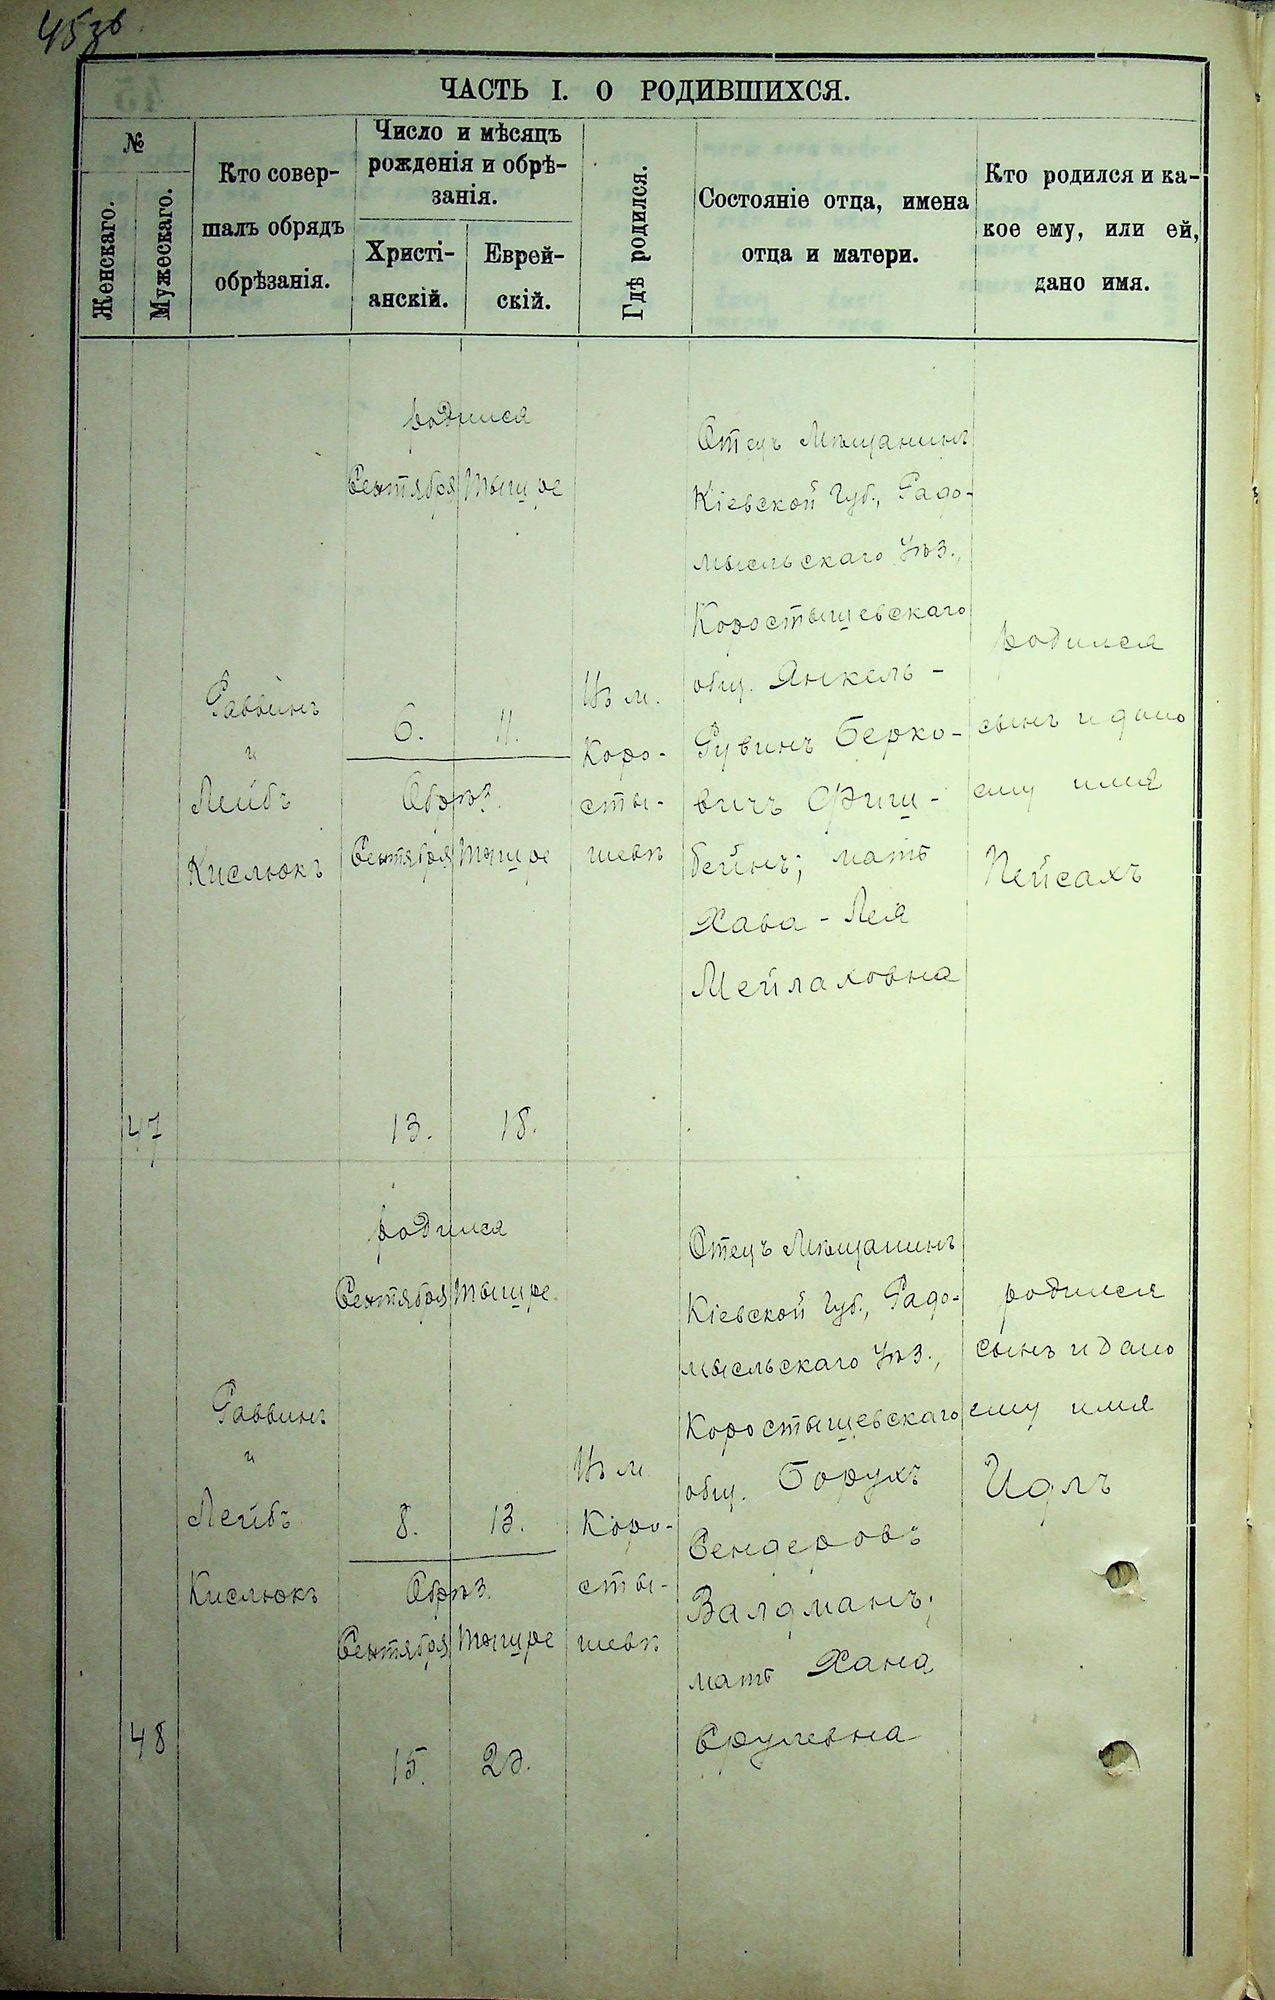 45зв
ЧАСТЬ I. О РОДИВШИХСЯ.
№
Женскаго.
Мужескаго.
Кто совер-
шалъ обрядъ
обрѣзанія.
Число и мѣсяцъ
рожденія и обрѣ-
занія.
Христі-
анскій.
Еврей-
скій.
Гдѣ родился.
Состояніе отца, имена
отца и матери.
Кто родился и ка-
кое ему, или ей,
дано имя.
47
Раввинъ
и
Лейбъ
Кислюкъ
родился
Сентября Тышре
6. 11.
Обрѣз.
Сентября Тышре
13. 18.
Въ м.
Коро-
сты-
шевѣ
Отецъ Мѣщанинъ
Кіевской Губ., Радо-
мысльскаго Уѣз.,
Коростышевскаго
общ. Янкель-
Рувинъ Берко-
вичъ Фиш-
бейнъ; мать
Хава-Лея
Мейлаховна
родился
сынъ и дано
ему имя
Пейсахъ
48
Раввинъ
и
Лейбъ
Кислюкъ
родился
Сентября Тышре
8. 13.
Обрѣз.
Сентября Тышре
15. 20.
Въ м.
Коро-
сты-
шевѣ
Отецъ Мѣщанинъ
Кіевской Губ., Радо-
мысльскаго Уѣз.,
Коростышевскаго
общ. Борухъ
Сендеровъ
Валдманъ;
мать Хана
Срулевна
родился
сынъ и дано
ему имя
Идлъ